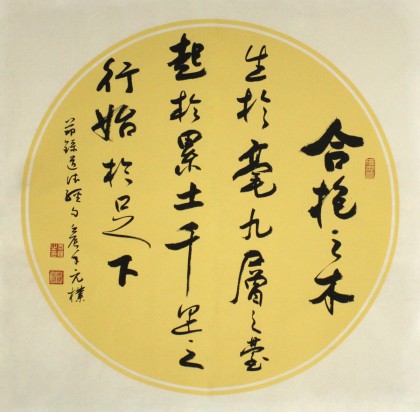 合抱之木
生於毫九層之臺
起於累土千里之
行始於足下
節錄道德經句 元樸